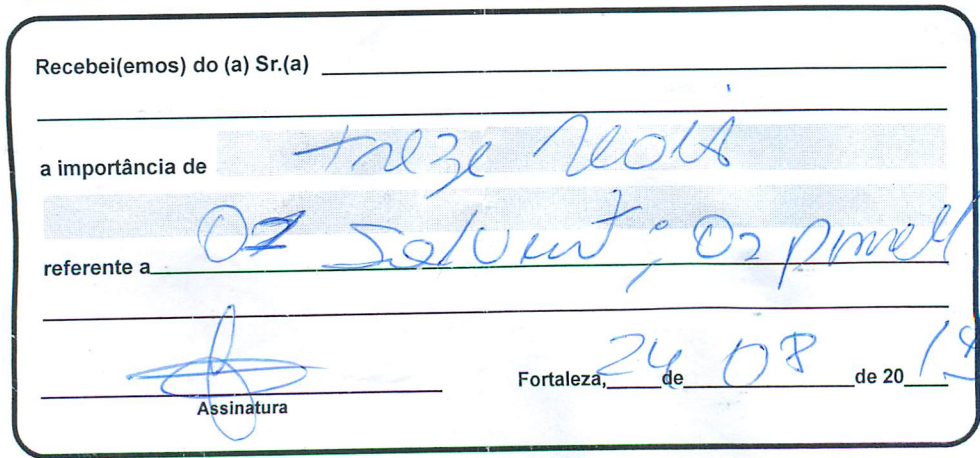 Recebei(emos) do (a) Sr.(a)
a importância de treze reais
referente a 01 Solvent; 02 pincel
Assinatura
Fortaleza, 24 de 08 de 20